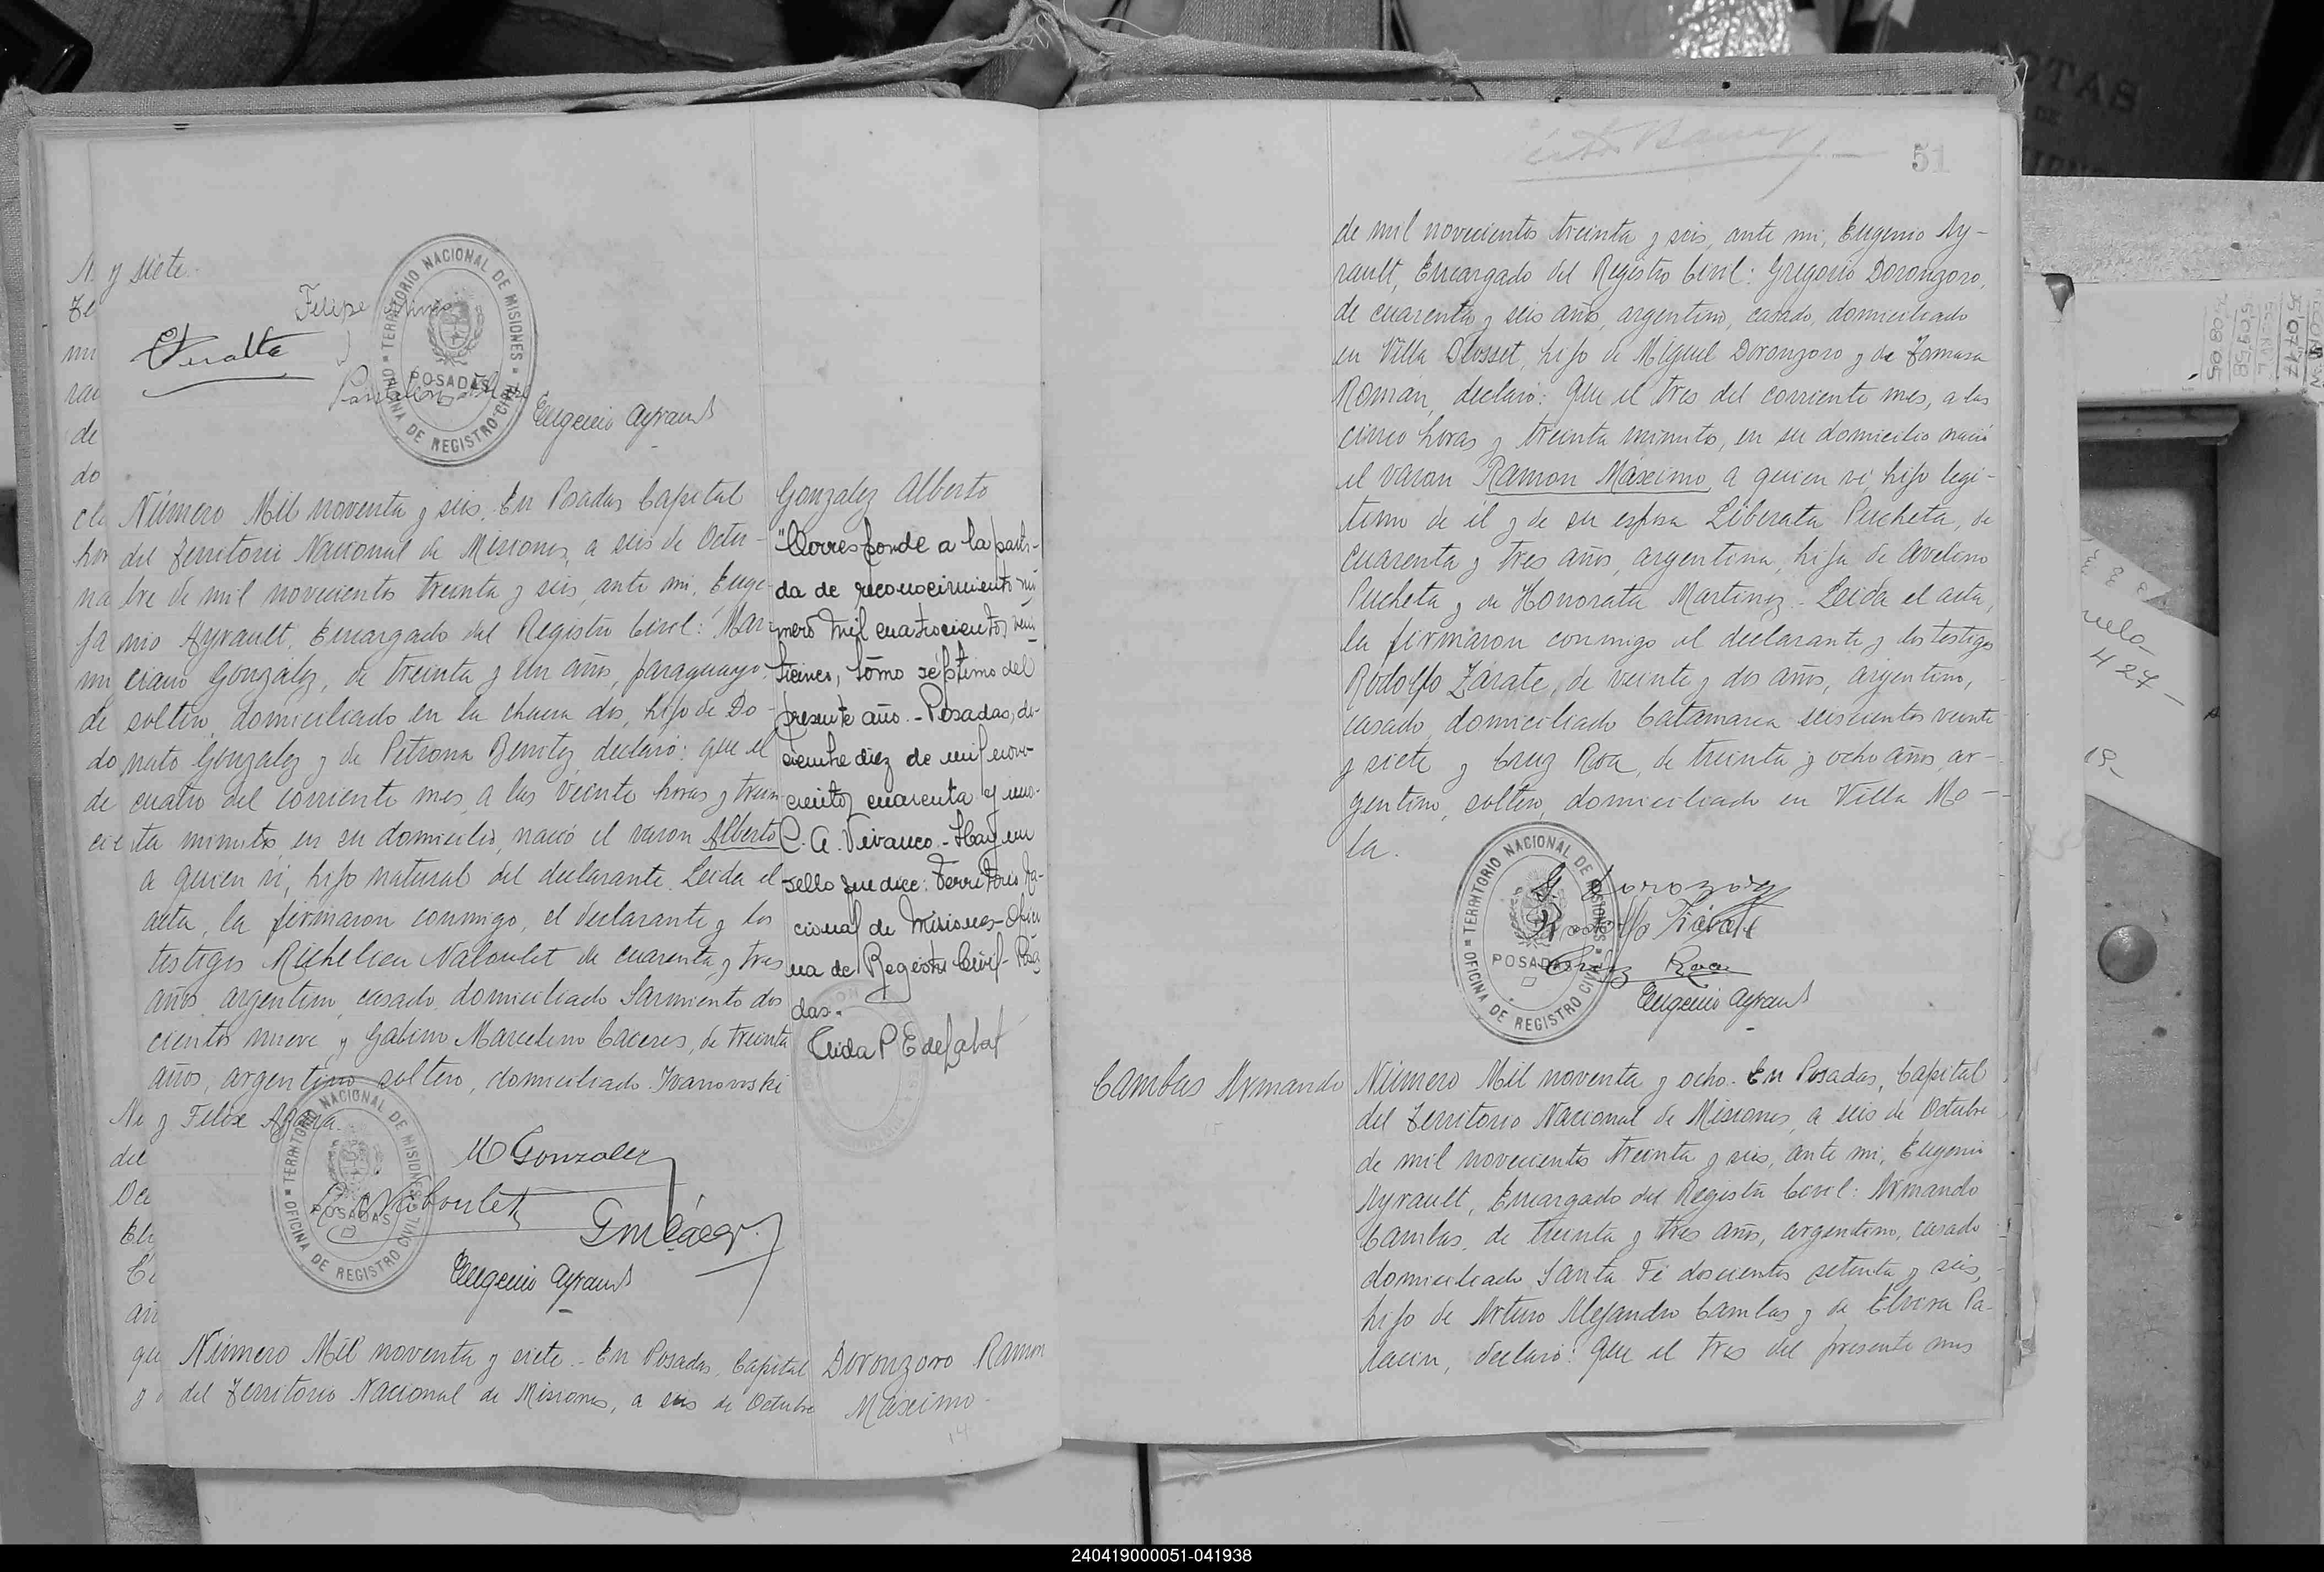 y siete.
Felipe
Peralta
TERRITORIO NACIONAL DE MISIONES
POSADAS
OFICINA DE REGISTRO CIVIL
Eugenio Ayrault
Número Mil noventa y seis. En Posadas Capital
del Territorio Nacional de Misiones, a seis de Octu-
bre de mil novecientos treinta y seis, ante mi, Euge-
nio Ayrault, Encargado del Registro Civil: Mar-
ciano Gonzalez, de treinta y un años, paraguayo,
soltero, domiciliado en la chacra dos, hijo de Do-
nato Gonzalez y de Petrona Benitez, declaró: que el
cuatro del corriente mes, a las veinte horas y trein-
ta minutos, en su domicilio, nació el varon Alberto
a quien vi, hijo natural del declarante. Leida el
acta, la firmaron conmigo, el declarante y los
testigos Richelieu Naboulet de cuarenta y tres
años, argentino, casado, domiciliado Sarmiento dos
cientos nueve y Gabino Marcelino Caceres, de treinta
años, argentino, soltero, domiciliado Ivanowski
y Felix Azara.
TERRITORIO NACIONAL DE MISIONES
POSADAS
OFICINA DE REGISTRO CIVIL
M Gonzalez
R. Naboulet
G M Cácer
Eugenio Ayrault
Gonzalez Alberto
"Corresponde a la parti-
da de reconocimiento nú-
mero mil cuatrocientos
tomo séptimo del
presente año.- Posadas, di-
ciembre diez de mil nove-
cientos cuarenta y uno.
C. A. Vivanco.- Hay un
sello que dice: Territorio Na-
cional de Misiones- Ofici
na de Registro Civil- Posa
das.-
Número Mil noventa y siete.- En Posadas, Capital
del Territorio Nacional de Misiones, a seis de Octubre
Doronzoro Ramon
Máximo.
14
51
de mil novecientos treinta y seis, ante mi, Eugenio Ay-
rault, Encargado del Registro Civil: Gregorio Doronzoro,
de cuarenta y seis años, argentino, casado, domiciliado
en Villa Blosset, hijo de Miguel Doronzoro y de Tomasa
Roman, declaró: Que el tres del corriente mes, a las
cinco horas y treinta minuto, en su domicilio nació
el varon Ramon Máximo, a quien vi, hijo legi-
timo de él y de su esposa Liberata Pucheta, de
cuarenta y tres años, argentina, hija de Avelino
Pucheta y de Honorata Martinez.- Leida el acta,
la firmaron conmigo el declarante y los testigos
Rodolfo Zárate, de veinte y dos años, argentino,
casado, domiciliado Catamarca seiscientos veinte
y siete y Cruz Roa, de treinta y ocho años, ar-
gentino, soltero, domiciliado en Villa Mo-
la.
TERRITORIO NACIONAL DE MISIONES
POSADAS
OFICINA DE REGISTRO CIVIL
G Doronzoro
Rodolfo Zárate
Cruz Roa
Eugenio Ayrault
Cambas Armando
Número Mil noventa y ocho. En Posadas, Capital
del Territorio Nacional de Misiones, a seis de Octubre
de mil novecientos treinta y seis, ante mi, Eugenio
Ayrault, Encargado del Registro Civil: Armando
Cambas, de treinta y tres años, argentino, casado
domiciliado Santa Fé doscientos setenta y seis,
hijo de Arturo Alejandro Cambas y de Elvira Pa-
lacin, declaró: Que el tres del presente mes
240419000051-041938